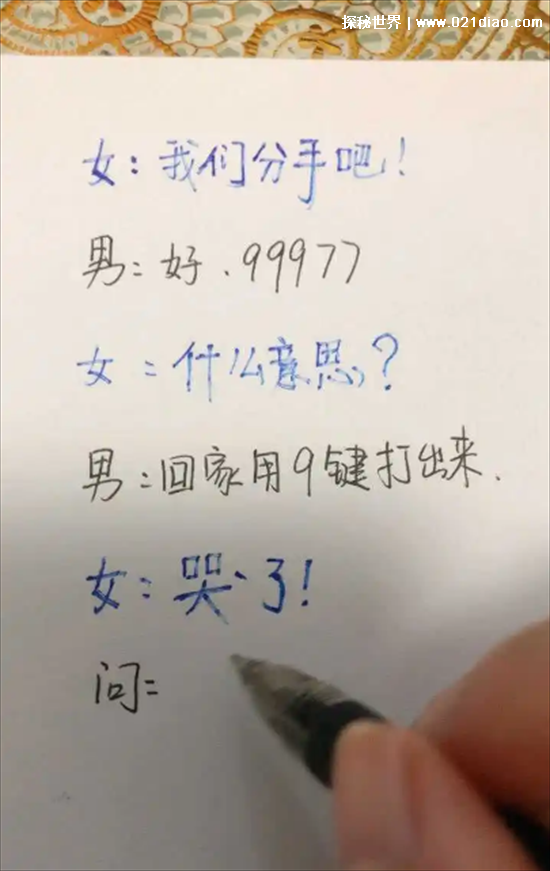 探秘世界 | www.021diao.com
女：我们分手吧！
男：好．99977
女：什么意思？
男：回家用9键打出来．
女：哭了！
问：